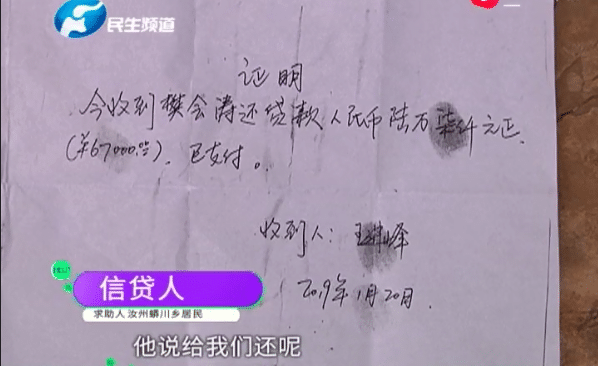 民生频道
证明
今收到樊会涛还贷款人民币陆万柒仟元正
(¥67000.00),已支付。
收到人:王 峰
2019年1月20日.
信贷人
求助人 汝州蟒川乡居民
他说给我们还呢